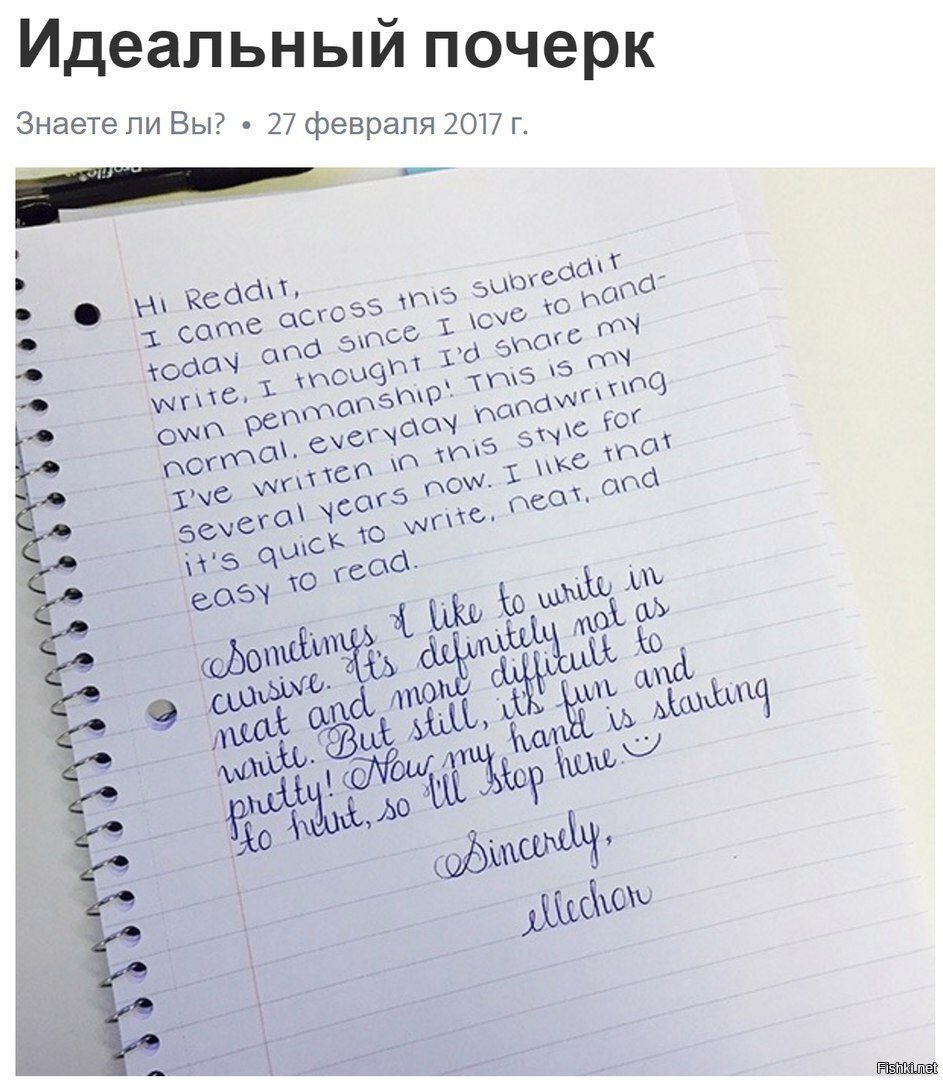 Идеальный почерк
Знаете ли Вы? • 27 февраля 2017 г.
Hi Reddit,
I came across this subreddit
today and since I love to hand-
write, I thought I'd share my
own penmanship! This is my
normal, everyday handwriting
I've written in this style for
several years now. I like that
it's quick to write, neat, and
easy to read.
Sometimes I like to write in
cursive. It's definitely not as
neat and more difficult to
write. But still, it's fun and
pretty! Now my hand is starting
to hurt, so I'll stop here.
Sincerely,
ellechor
Fishki.net